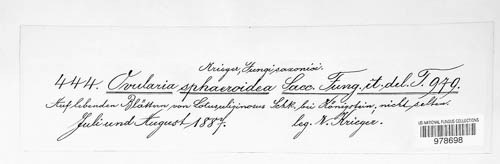 Krieger, Fungi saxonici.
444. Ovularia sphaeroidea Sacc. Fung. it. del. T. 979.
Auf lebenden Blättern von Lotus uliginosus Schk. bei Königstein, nicht selten.
Juli und August 1887. leg. W. Krieger.
US NATIONAL FUNGUS COLLECTIONS
978698